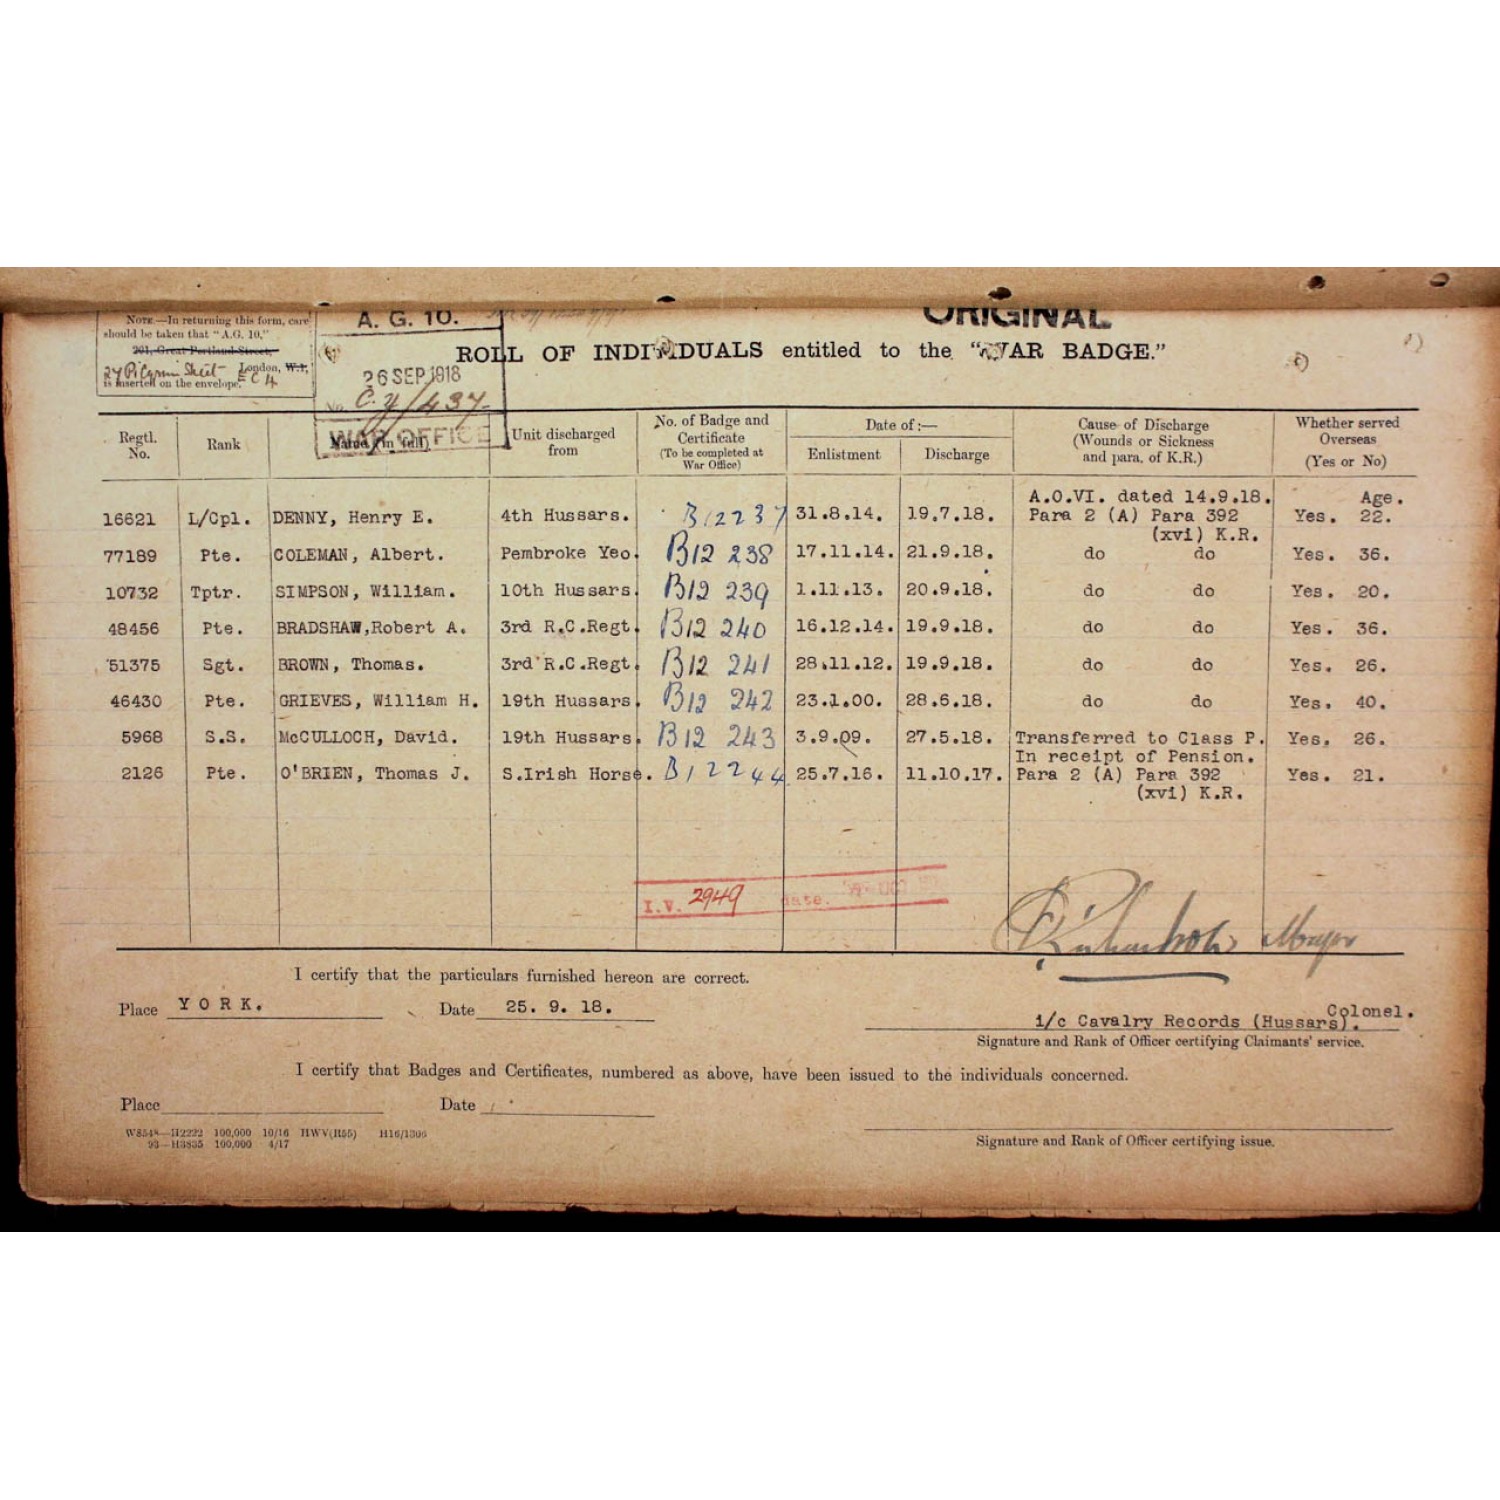 NOTE.—In returning this form, care
should be taken that "A.G. 10,"
201, Great Portland Street,
27 Pilgrim Street London, W.1,
E C 4
is inserted on the envelope.
A. G. 10.
26 SEP 1918
No. C.4/437
WAR OFFICE
ORIGINAL
ROLL OF INDIVIDUALS entitled to the "WAR BADGE."
Regtl. No.
Rank
Name (in full)
Unit discharged from
No. of Badge and Certificate (To be completed at War Office)
Date of :—
Enlistment
Discharge
Cause of Discharge (Wounds or Sickness and para. of K.R.)
Whether served Overseas (Yes or No)
A.O.VI. dated 14.9.18. Age.
16621 L/Cpl. DENNY, Henry E. 4th Hussars. B12237 31.8.14. 19.7.18. Para 2 (A) Para 392 Yes. 22.
(xvi) K.R.
77189 Pte. COLEMAN, Albert. Pembroke Yeo. B12 238 17.11.14. 21.9.18. do do Yes. 36.
10732 Tptr. SIMPSON, William. 10th Hussars. B12 239 1.11.13. 20.9.18. do do Yes. 20.
48456 Pte. BRADSHAW,Robert A. 3rd R.C.Regt. B12 240 16.12.14. 19.9.18. do do Yes. 36.
51375 Sgt. BROWN, Thomas. 3rd R.C.Regt. B12 241 28.11.12. 19.9.18. do do Yes. 26.
46430 Pte. GRIEVES, William H. 19th Hussars. B12 242 23.1.00. 28.6.18. do do Yes. 40.
5968 S.S. McCULLOCH, David. 19th Hussars. B12 243 3.9.09. 27.5.18. Transferred to Class P. Yes. 26.
In receipt of Pension.
2126 Pte. O'BRIEN, Thomas J. S.Irish Horse. B12244 25.7.16. 11.10.17. Para 2 (A) Para 392 Yes. 21.
(xvi) K.R.
I.V. 2949 date.
Major
I certify that the particulars furnished hereon are correct.
Place YORK. Date 25. 9. 18.
Colonel.
i/c Cavalry Records (Hussars).
Signature and Rank of Officer certifying Claimants' service.
I certify that Badges and Certificates, numbered as above, have been issued to the individuals concerned.
Place Date
W8548—H2222 100,000 10/16 HWV(R55) H16/1306
93—H3835 100,000 4/17
Signature and Rank of Officer certifying issue.